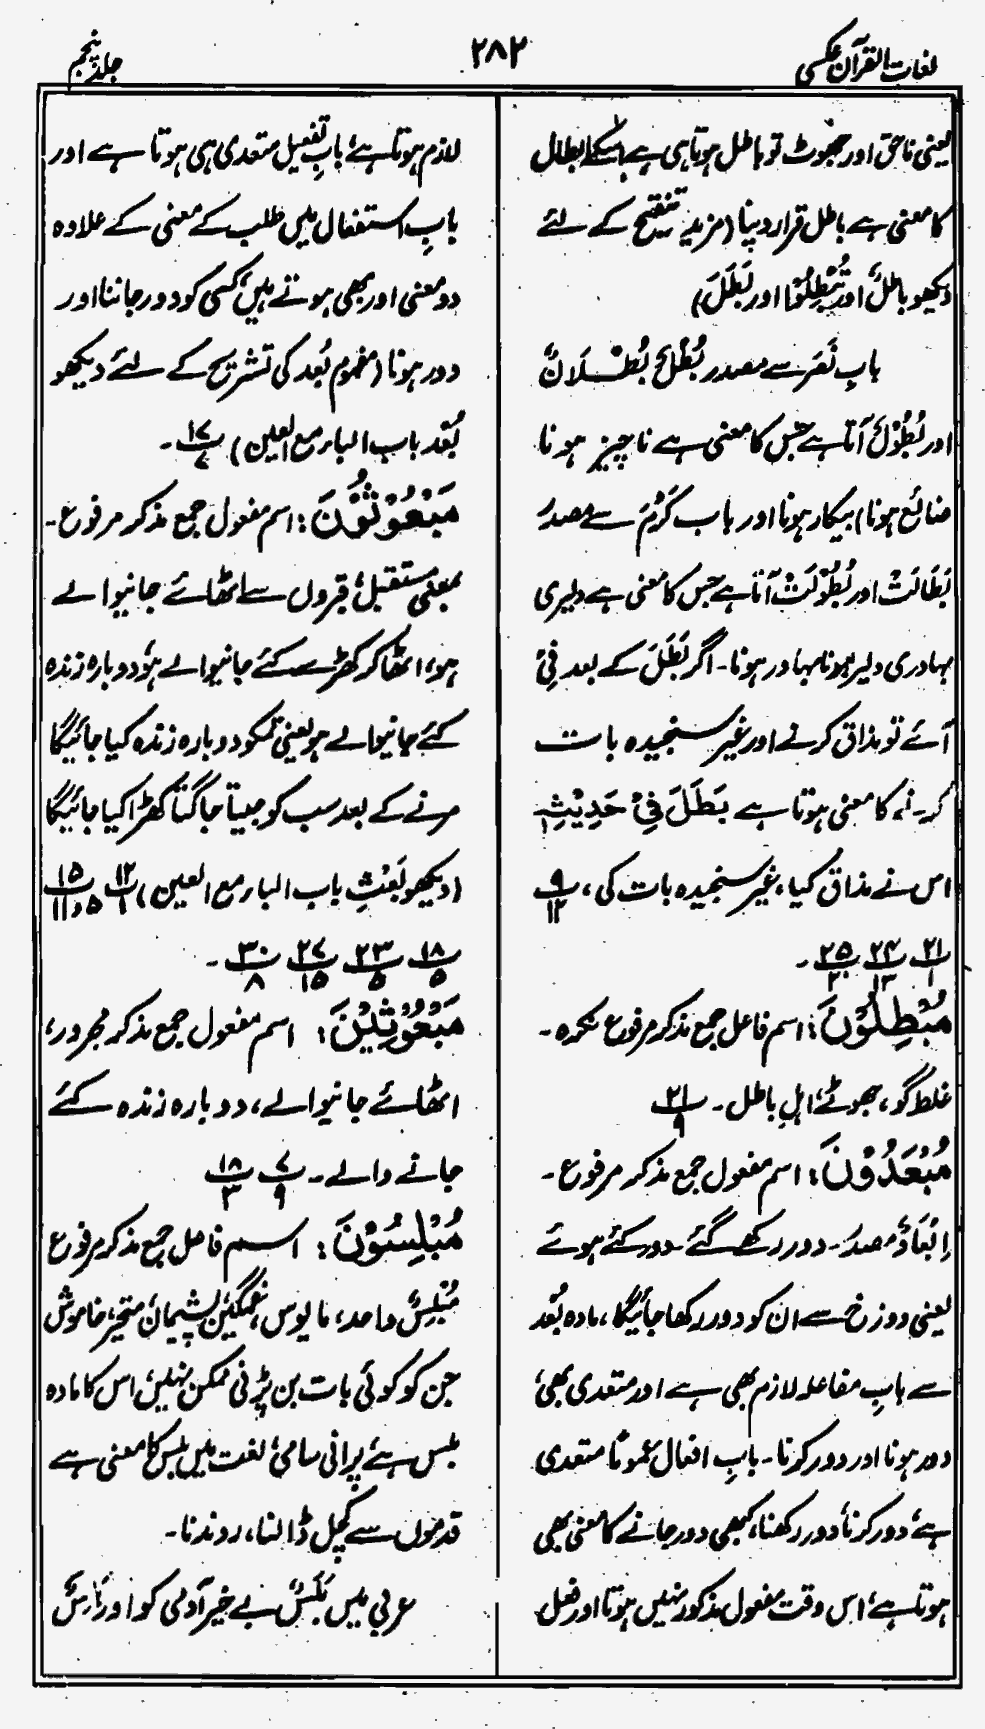 لغات القرآن عکسی
۲۸۲
جلد پنجم
یعنی ناحق اور جھوٹ تو باطل ہوتا ہی ہے اسکے ابطال
کا معنی ہے باطل قرار دینا (مزید تنقیح کے لئے
دیکھو باطلٌ اور تُبْطِلُوْا اور بَطَلَ)
بابِ نَصَرَ سے مصدر بُطْلٌ بُطْلَانٌ
اور بُطُوْلٌ آتا ہے جس کا معنی ہے ناچیز ہونا
ضائع ہونا، بیکار ہونا اور باب کَرُمَ سے مصدر
بَطَالَتْ اور بُطُوْلَتْ آتا ہے جس کا معنی ہے دلیری
بہادری دلیر ہونا بہادر ہونا۔ اگر بَطَلَ کے بعد فِیْ
آئے تو مذاق کرنے اور غیر سنجیدہ بات
کرنے کا معنی ہوتا ہے بَطَلَ فِیْ حَدِیْثِہٖ
اس نے مذاق کیا، غیر سنجیدہ بات کی، پ ۹/۱۲
پ ۲۱/۱ پ ۲۴/۱۳ پ ۲۵/۲۰۔
مُبْطِلُوْنَ: اسم فاعل جمع مذکر مرفوع نکرہ۔
غلط گو، جھوٹے، اہلِ باطل۔ پ ۲۱/۹
مُبْعَدُوْنَ: اسم مفعول جمع مذکر مرفوع۔
اِبْعَادٌ مصدر۔ دور رکھے گئے۔ دور کئے ہوئے
یعنی دوزخ سے ان کو دور رکھا جائیگا، مادہ بُعْد
سے بابِ مفاعلہ لازم بھی ہے اور متعدی بھی
دور ہونا اور دور کرنا۔ بابِ افعال عموماً متعدی
ہے، دور کرنا، دور رکھنا، کبھی دور جانے کا معنی بھی
ہوتا ہے، اس وقت مفعول مذکور نہیں ہوتا اور فعل
لازم ہوتا ہے، بابِ تفعیل متعدی ہی ہوتا ہے اور
بابِ استفعال میں طلب کے معنی کے علاوہ
دو معنی اور بھی ہوتے ہیں، کسی کو دور جاننا اور
دور ہونا (مفہوم بُعد کی تشریح کے لئے دیکھو
بُعْد باب الباء مع العین) پ ۱۷/۷۔
مَبْعُوْثُوْنَ: اسم مفعول جمع مذکر مرفوع۔
بمعنی مستقبل، قبروں سے اٹھائے جانیوالے
ہو، اٹھا کر کھڑے کئے جانیوالے ہو، دوبارہ زندہ
کئے جانیوالے ہو یعنی تمکو دوبارہ زندہ کیا جائیگا
مرنے کے بعد سب کو جیتا جاگتا کھڑا کیا جائیگا
(دیکھو بَعْثِ باب الباء مع العین) پ ۱۲/۱ پ ۱۵/۵،۱۱
پ ۱۸/۵ پ ۲۳/۵ پ ۲۷/۱۵ پ ۳۰/۸۔
مَبْعُوْثِیْنَ: اسم مفعول جمع مذکر مجرور،
اٹھائے جانیوالے، دوبارہ زندہ کئے
جانے والے۔ پ ۷/۹ پ ۱۸/۳
مُبْلِسُوْنَ: اسم فاعل جمع مذکر مرفوع
مُبْلِسٌ واحد، مایوس، غمگین، پشیمان، متحیر، خاموش
جن کو کوئی بات بن پڑنی ممکن نہیں، اس کا مادہ
بلس ہے، پرانی سامی لغت میں بلس کا معنی ہے
قدموں سے کچل ڈالنا، روندنا۔
عربی میں بَلَسٌ بے خیر آدمی کو اور